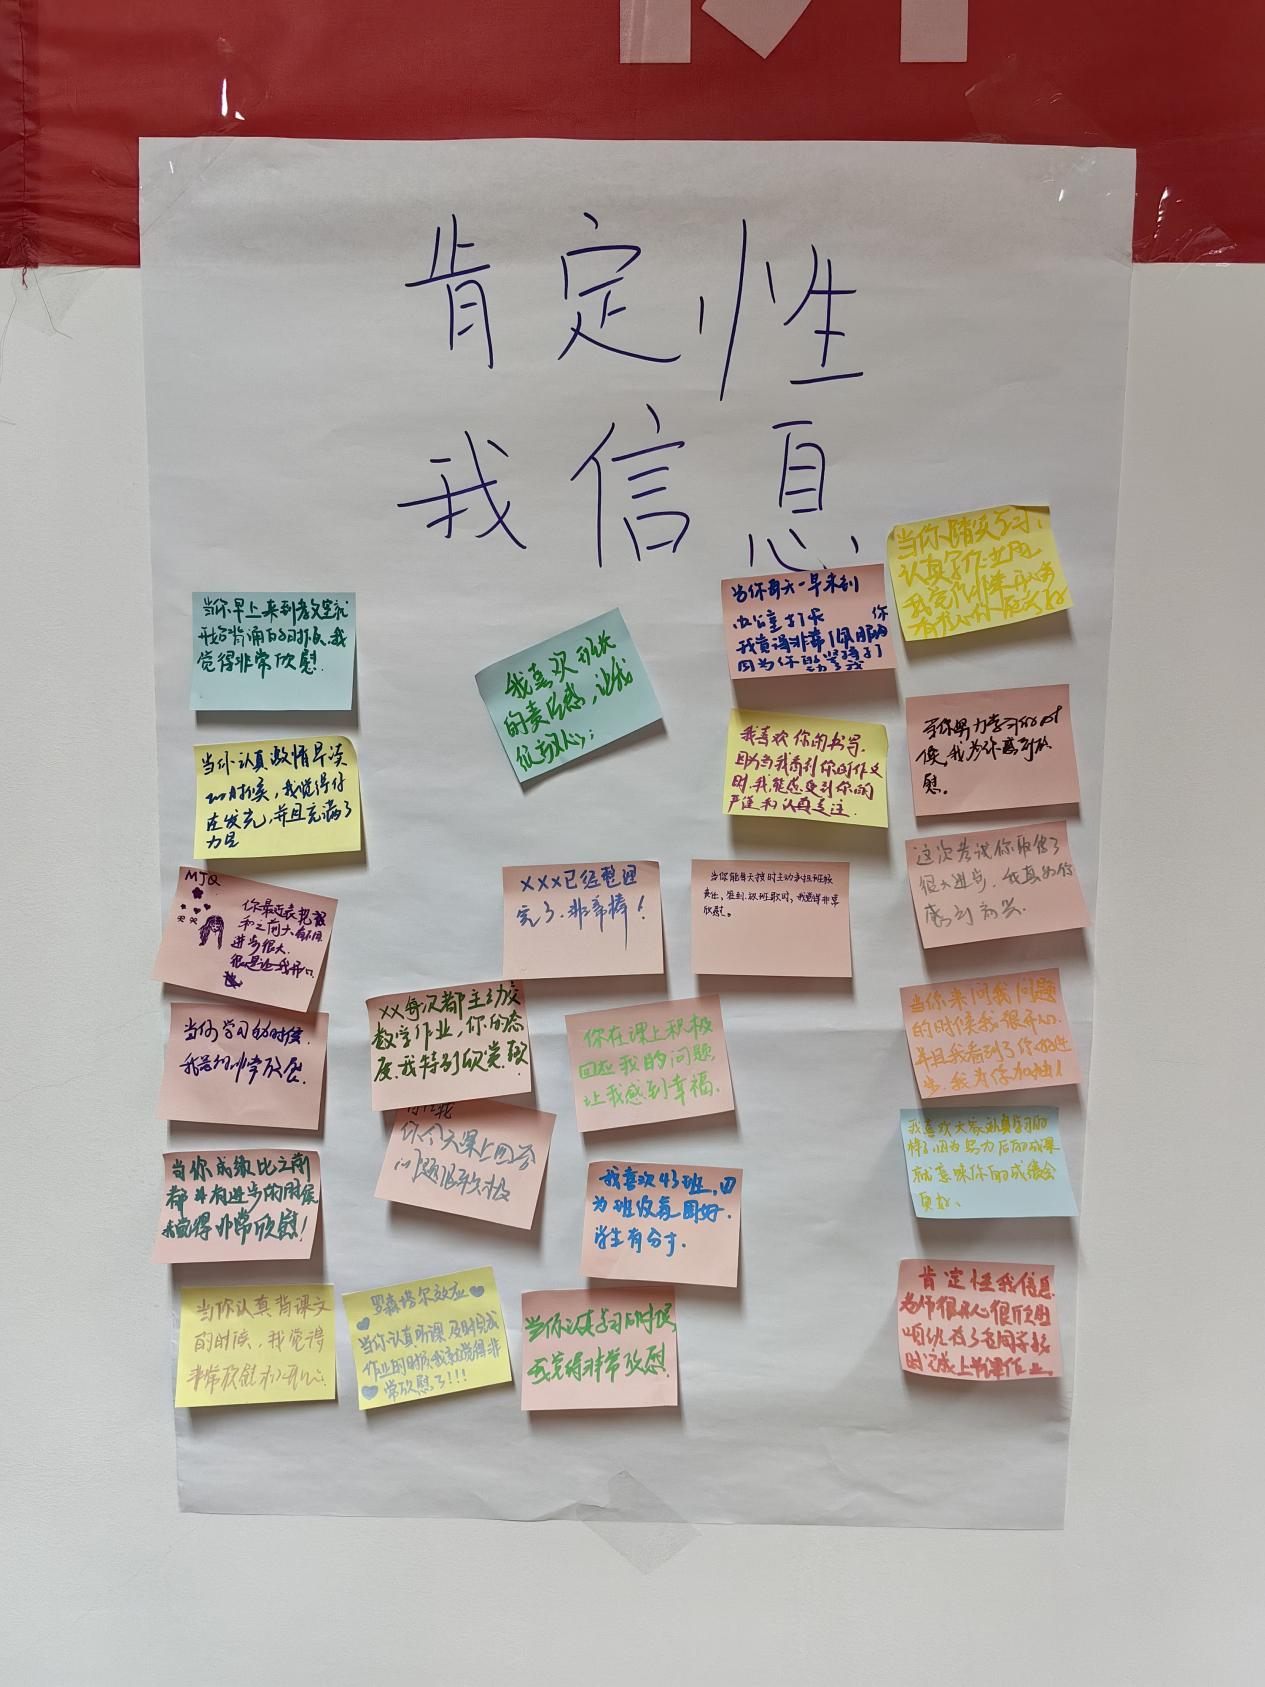 肯定性
我信息
当你踏实学习，
认真写作业时，
我觉得非常
当你每天一早来到
办公室打 你
我觉得非常佩服
因为你的坚持
当你早上来到教室就
开始背诵的时候，我
觉得非常欣慰.
我喜欢
的责任感，让我
我喜欢你的书写，
因为当我看到你的作文
时，我能感受到你的
严谨和认真专注.
当你努力学习的时
候，我为你感到欣
慰.
当你认真激情早读
的时候，我觉得你
在发光，并且充满了
力量
这次考试你取得了
很大进步，我真为你
感到高兴.
MJQ
你最近表现
和之前大有不同
进步很大.
×××已经整理
完了，非常棒！
当你能每天按时主动承担班级
责任，签到
欣慰。
当你学习的时候.
我 非常欣慰.
××每次都主动交
数学作业，你的态
度，我特别欣赏
你在课上积极
回应我的问题
让我感到幸福.
当你来问我问题
的时候我很开心.
并且我看到了你的进
步，我为你加油！
你今天课上回答
问题很积极
我喜欢大家认真学习的
样子，因为努力后的成果
就意味你的成绩会
更好、
当你成绩比之前
都 有进步的时候
我觉得非常欣慰！
我喜欢43班，因
为班级氛围好.
学生有分寸.
当你认真背课文
的时候，我觉得
非常欣慰和开心.
罗森塔尔效应
当你认真听课及时完成
作业的时候，我就觉得非
常欣慰了！！！
当你认真学习的时候
我觉得非常欣慰
肯定性我信息
老师很开心很欣慰
咱班孩子
时完成上节课作业.